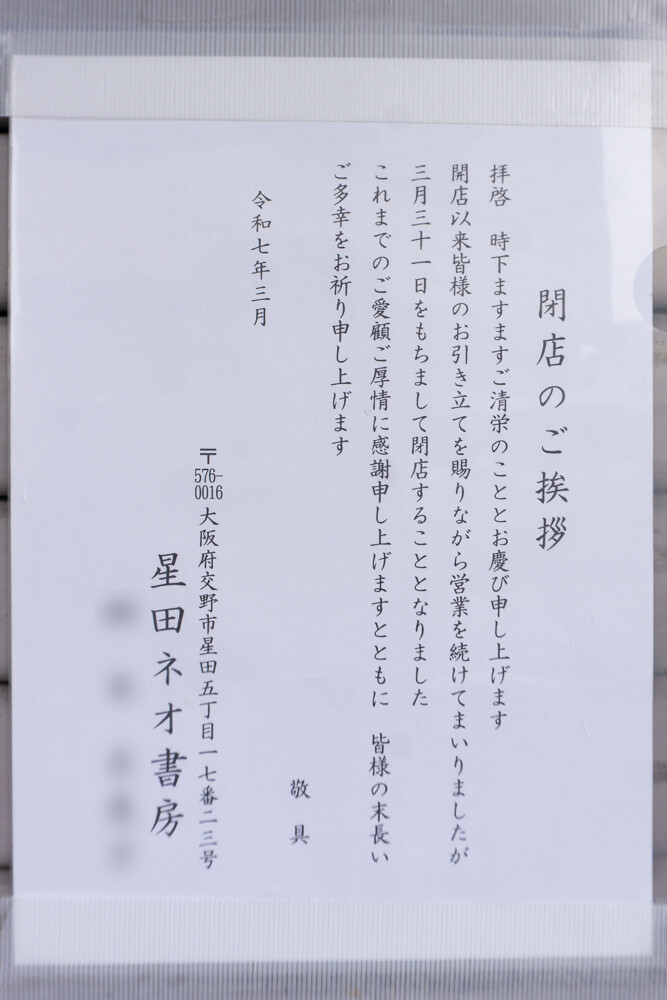 閉店のご挨拶
拝啓　時下ますますご清栄のこととお慶び申し上げます
開店以来皆様のお引き立てを賜りながら営業を続けてまいりましたが
三月三十一日をもちまして閉店することとなりました
これまでのご愛顧ご厚情に感謝申し上げますとともに　皆様の末長い
ご多幸をお祈り申し上げます
敬具
令和七年三月
〒576-0016 大阪府交野市星田五丁目一七番二三号
星田ネオ書房